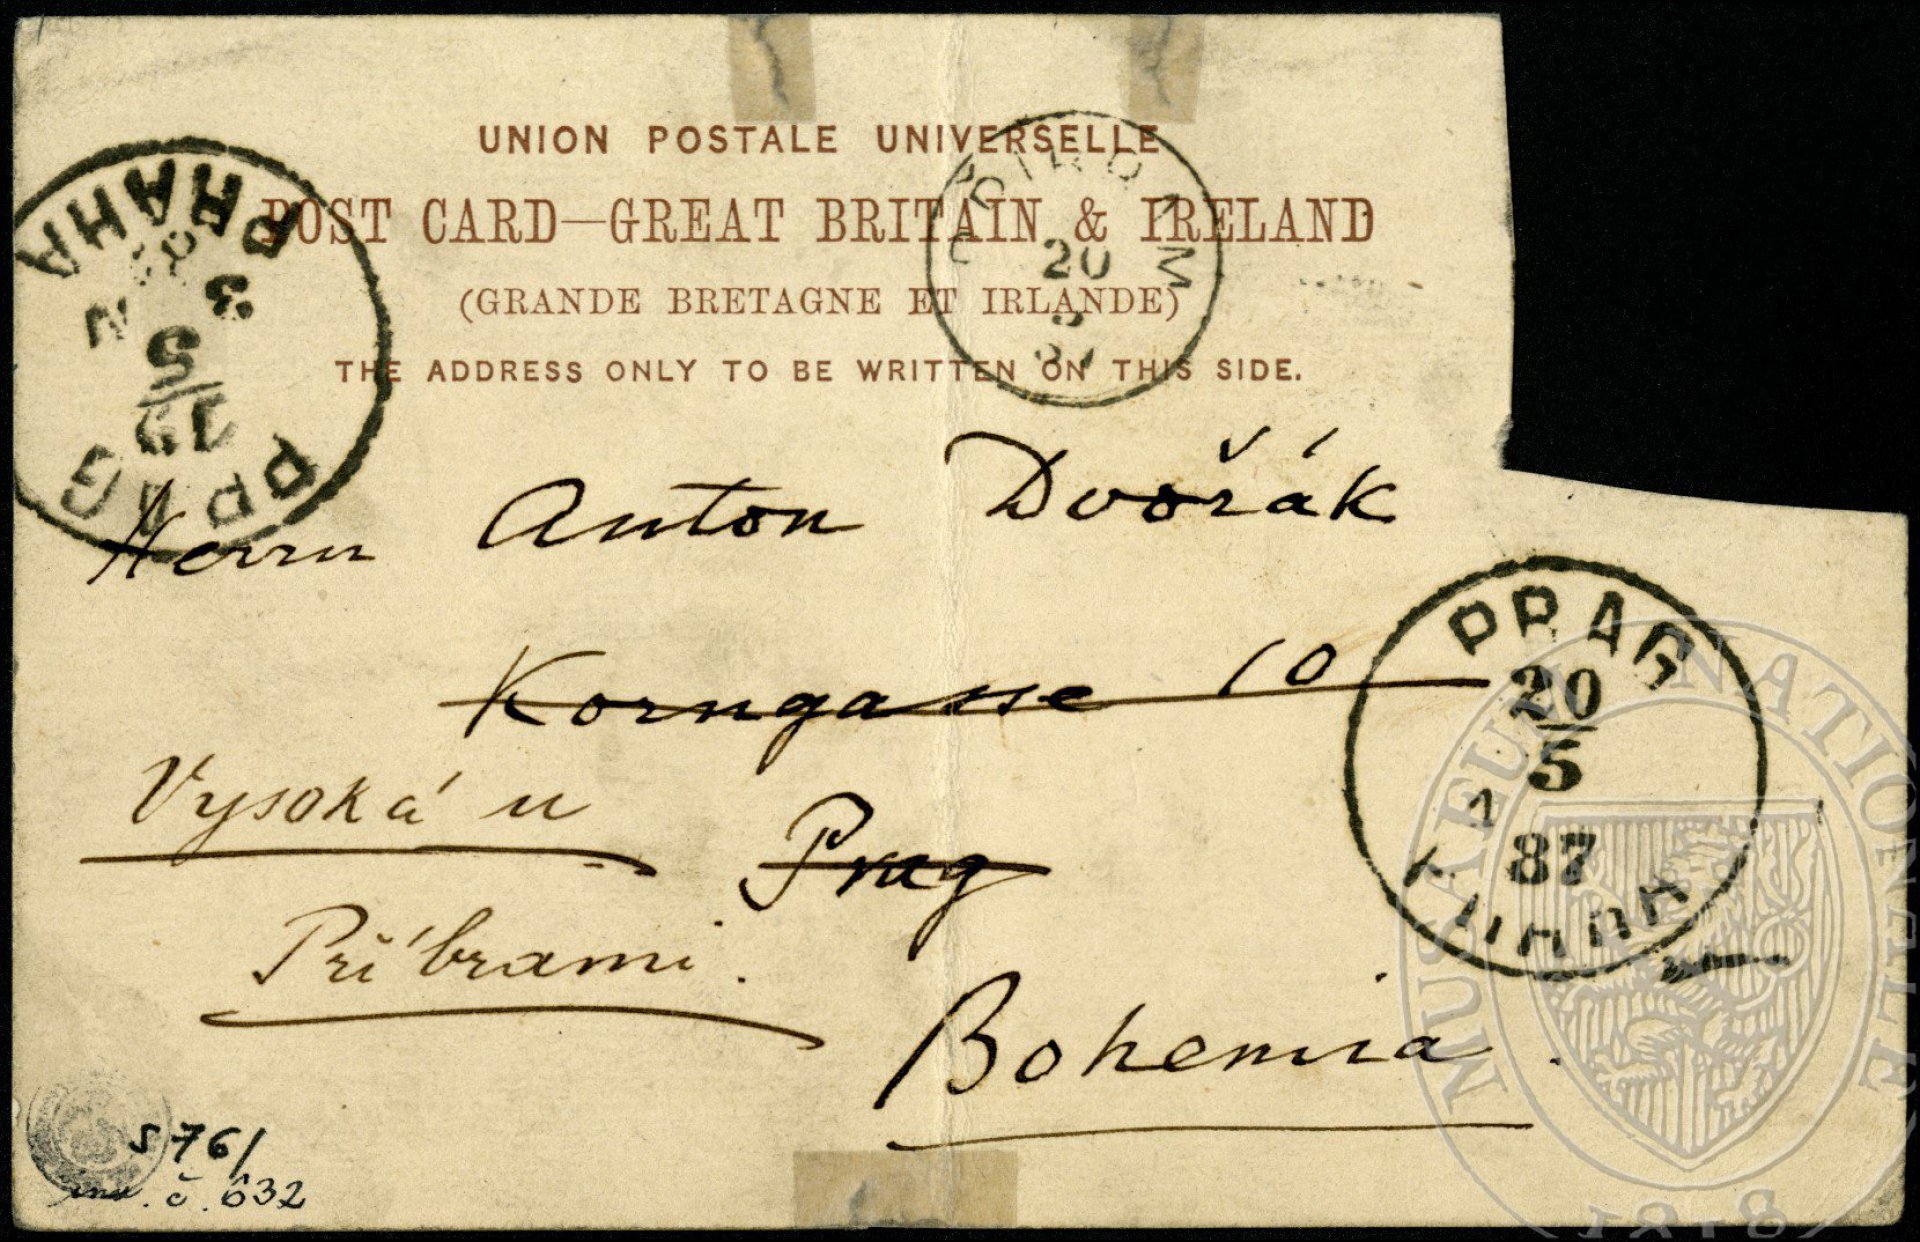 UNION POSTALE UNIVERSELLE
POST CARD—GREAT BRITAIN & IRELAND
(GRANDE BRETAGNE ET IRLANDE)
THE ADDRESS ONLY TO BE WRITTEN ON THIS SIDE.
PRAHA
3
5
19
PRAG
PŘIBRAM
20
5
87
Herrn Anton Dvořák
Korngasse 10
Vysoká u
Prag
Příbrami.
Bohemia.
PRAG
20
5
87
PRAHA
S 76/
inv. č. 632
MUSAEUM NATIONALE
1818